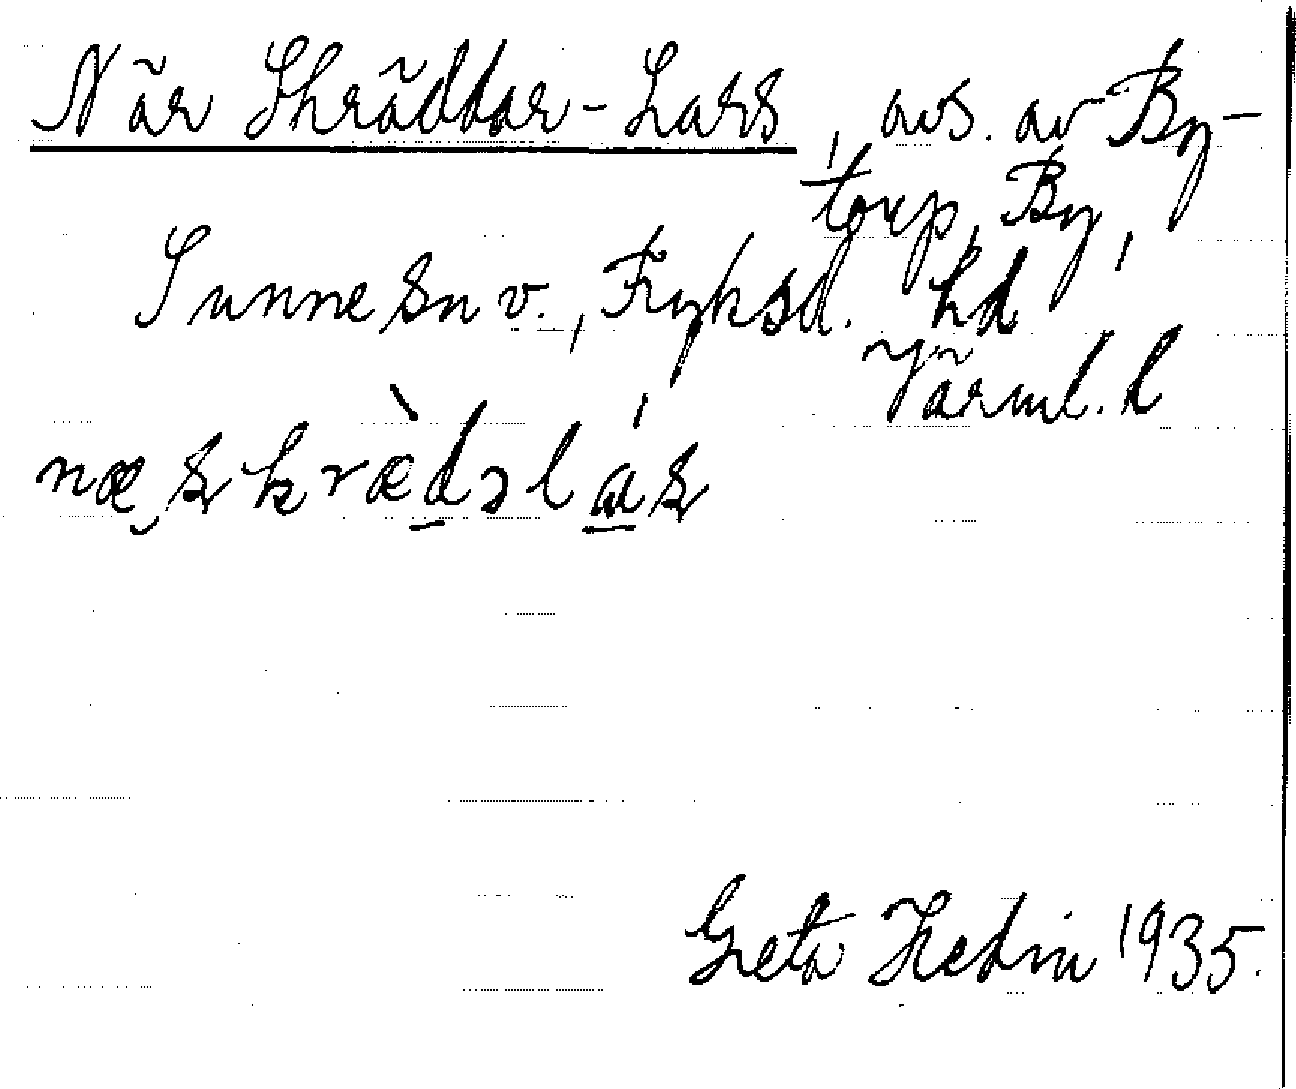 När Skräddar-Lars, avs. av By-
torp, By,
Sunne sn v., Fryksd. hd
Värml. l
næ skrædəlás
Greta Hedin 1935.